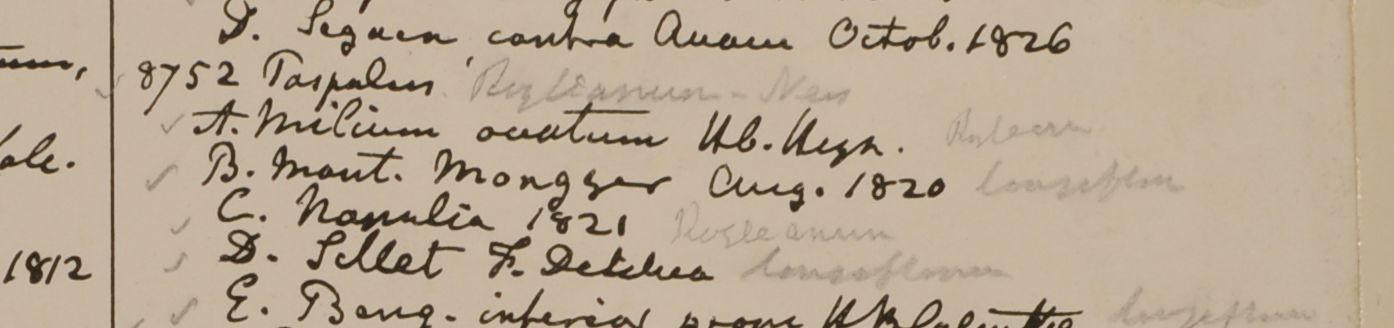 D. Segaen contra Avam Octob. 1826
8752 Paspalum Royleanum - Nees
A. Milium ovatum Hb. Heyn. Royleanum
B. Mont. Mongger Aug. 1820 longiflorum
C. Napalia 1821 Royleanum
D. Sillet F. De longiflorum
E. Beng. inferior longiflorum
1812